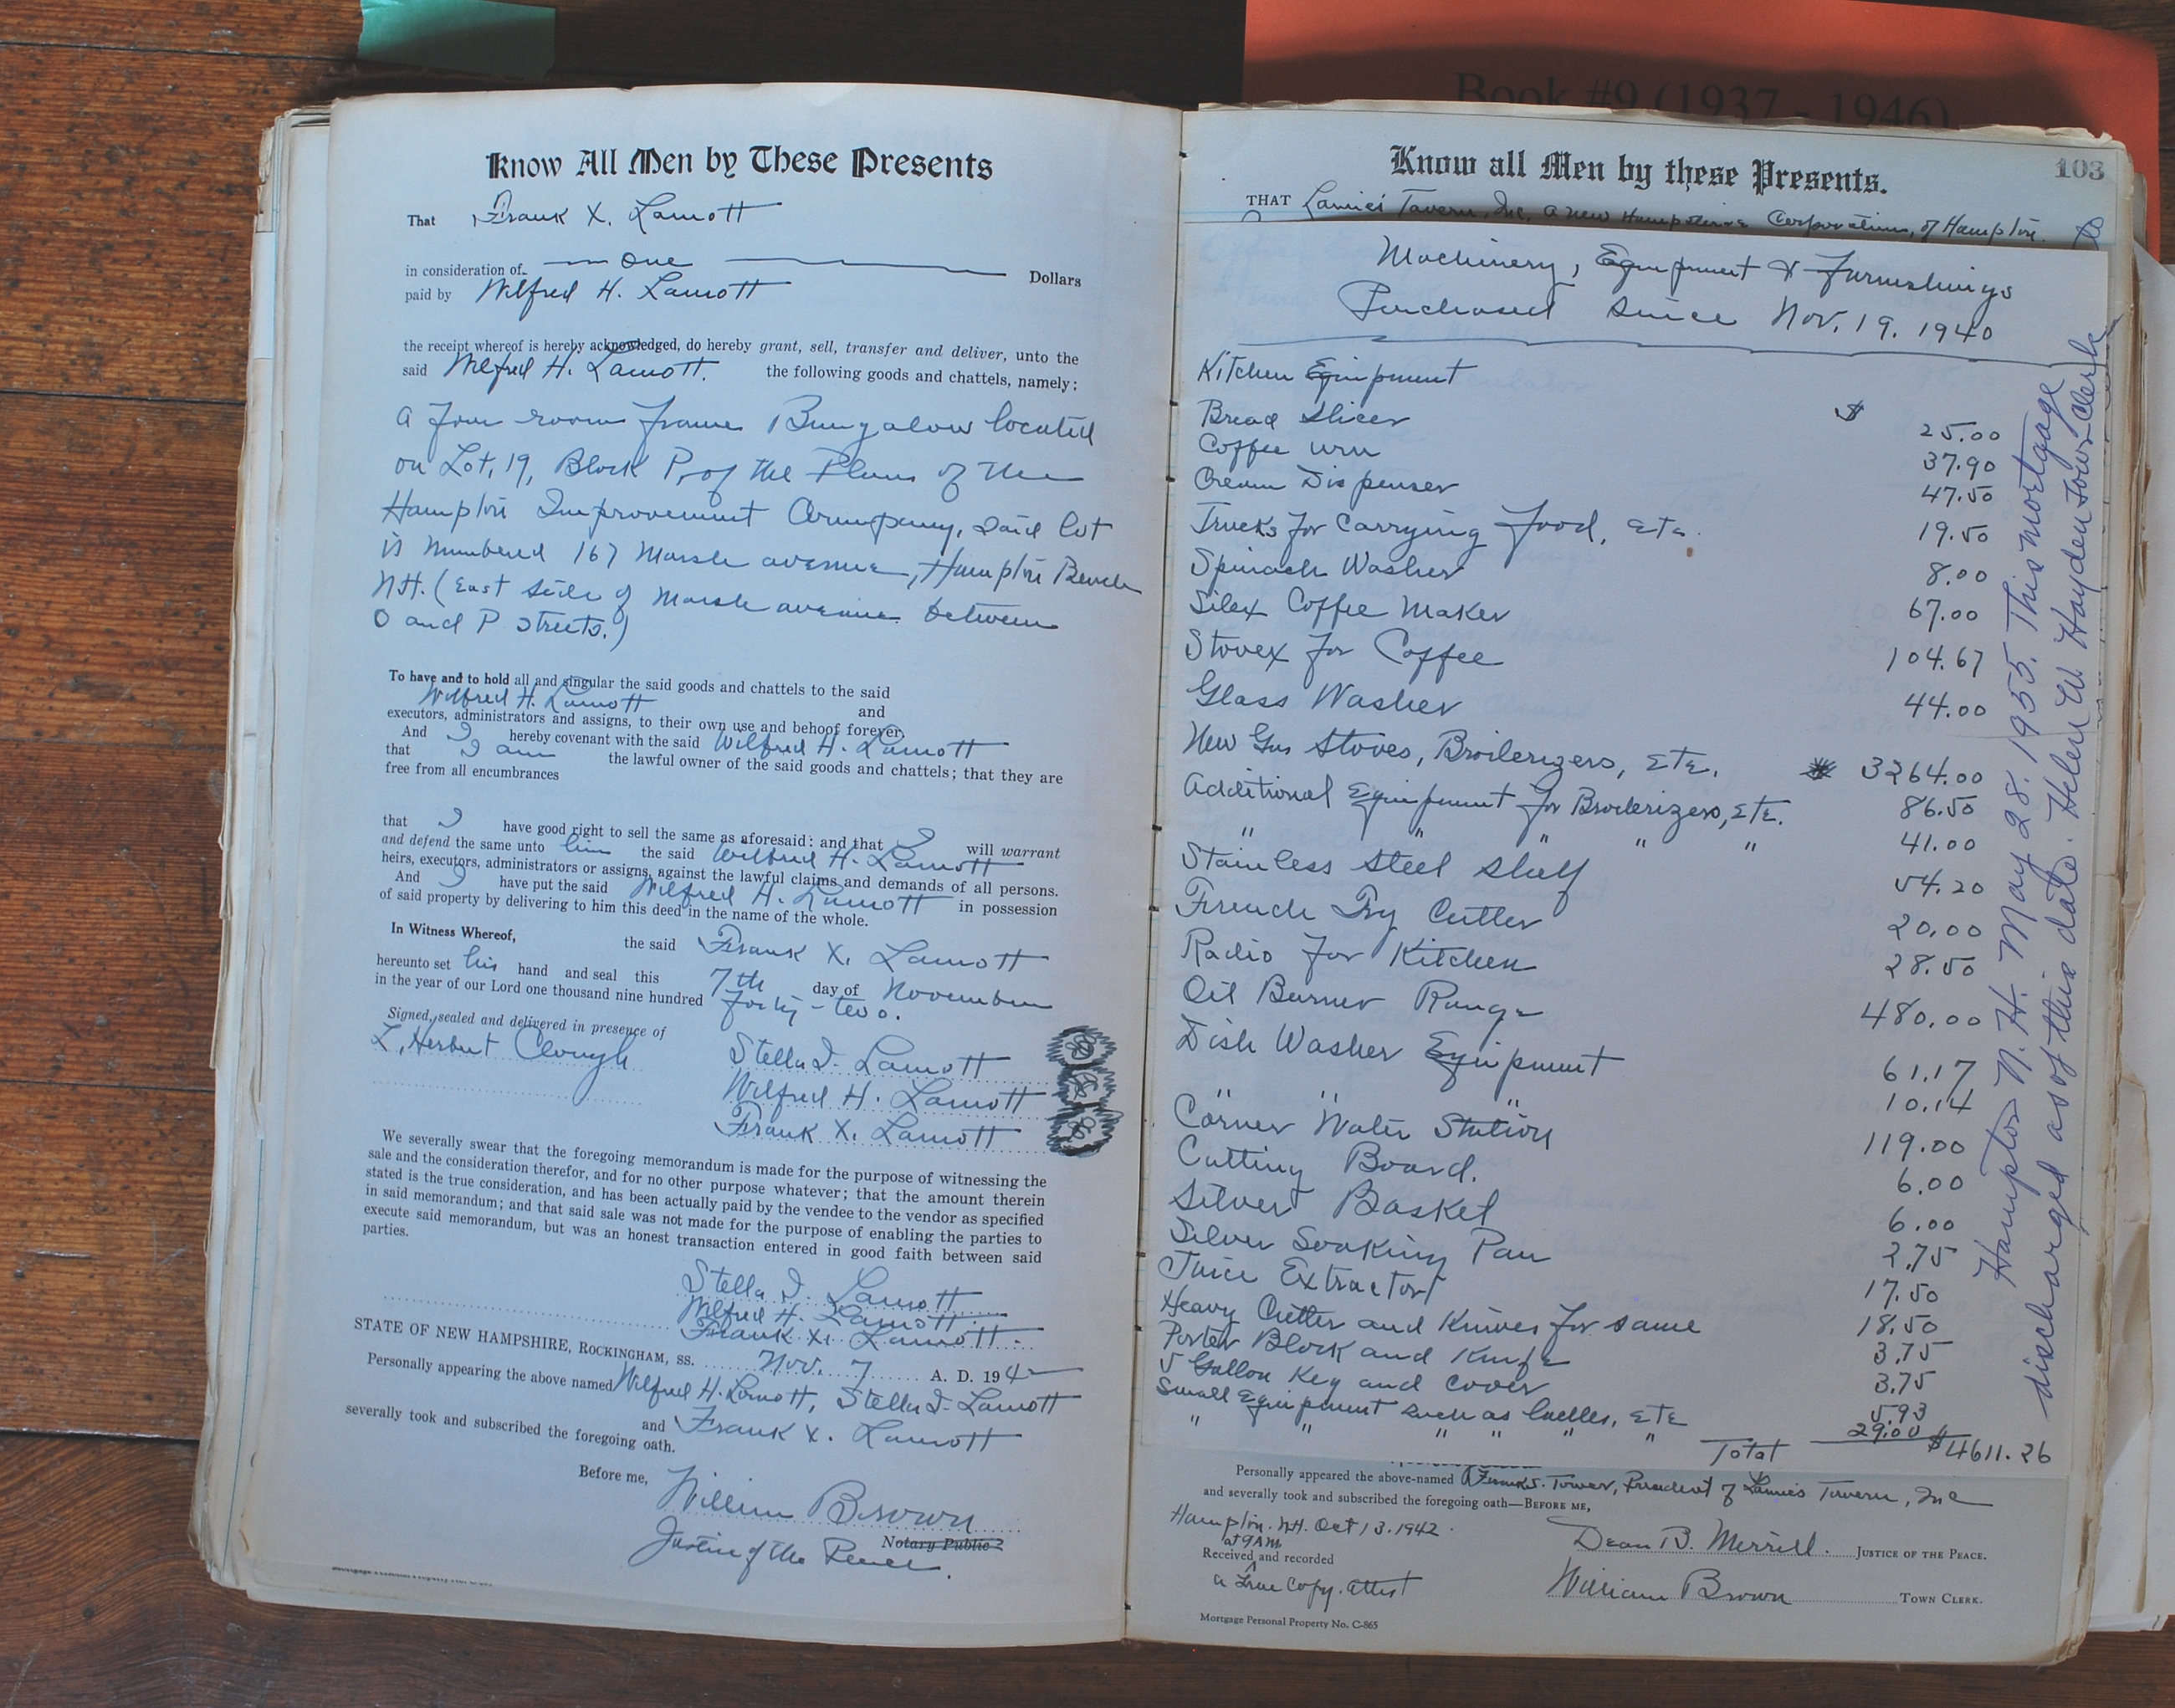 Book #9 (1937 - 1946)
Know All Men by These Presents
That Frank X. Lamott
in consideration of One Dollars
paid by Wilfred H. Lamott
the receipt whereof is hereby acknowledged, do hereby grant, sell, transfer and deliver, unto the
said Wilfred H. Lamott. the following goods and chattels, namely:
a four room frame Bungalow located
on Lot, 19, Block P, of the Plans of the
Hampton Improvement Company, said lot
is numbered 167 Marsh avenue, Hampton Beach
N.H. (East side of Marsh avenue between
O and P. Streets.)
To have and to hold all and singular the said goods and chattels to the said
Wilfred H. Lamott and
executors, administrators and assigns, to their own use and behoof forever,
And I hereby covenant with the said Wilfred H. Lamott
that I am the lawful owner of the said goods and chattels; that they are
free from all encumbrances
that I have good right to sell the same as aforesaid: and that I will warrant
and defend the same unto him the said Wilfred H. Lamott
heirs, executors, administrators or assigns, against the lawful claims and demands of all persons.
And I have put the said Wilfred H. Lamott in possession
of said property by delivering to him this deed in the name of the whole.
In Witness Whereof, the said Frank X. Lamott
hereunto set his hand and seal this 7th day of November
in the year of our Lord one thousand nine hundred forty-two.
Signed, sealed and delivered in presence of
L. Herbert Clough Stella I. Lamott
Wilfred H. Lamott
Frank X. Lamott
We severally swear that the foregoing memorandum is made for the purpose of witnessing the
sale and the consideration therefor, and for no other purpose whatever; that the amount therein
stated is the true consideration, and has been actually paid by the vendee to the vendor as specified
in said memorandum; and that said sale was not made for the purpose of enabling the parties to
execute said memorandum, but was an honest transaction entered in good faith between said
parties.
Stella I. Lamott
Wilfred H. Lamott
Frank X. Lamott
STATE OF NEW HAMPSHIRE, ROCKINGHAM, SS. Nov. 7 A. D. 1942
Personally appearing the above named Wilfred H. Lamott, Stella I. Lamott
and Frank X. Lamott
severally took and subscribed the foregoing oath.
Before me, William Brown
Notary Public
Justice of the Peace.
Know all Men by these Presents. 103
THAT Lamie's Tavern, Inc, a new Hampshire Corporation, of Hampton.
Machinery, Equipment & Furnishings
Purchased Since Nov. 19. 1940
Kitchen Equipment
Bread Slicer $ 25.00
Coffee urn 37.90
Cream Dispenser 47.50
Trucks for carrying food, etc. 19.50
Spinach Washer 8.00
Silex Coffee Maker 67.00
Stovex for Coffee 104.67
Glass Washer 44.00
New Gas Stoves, Broilerizers, Etc. 3264.00
Additional Equipment for Broilerizers, etc. 86.50
" " " " " 41.00
Stainless Steel Shelf 54.20
French Fry Cutter 20.00
Radio for Kitchen 28.50
Oil Burner Range 480.00
Dish Washer Equipment 61.17
" " " 10.14
Corner Water Station 119.00
Cutting Board. 6.00
Silver Basket 6.00
Silver Soaking Pan 2.75
Juice Extractor 17.50
Heavy Cutter and Knives for same 18.50
Porter Block and Knife 3.75
5 Gallon Keg and cover 3.75
Small Equipment such as ladles, etc 5.93
" " " " " " 29.00
Total $4611.26
Personally appeared the above-named Frank S. Tower, President of Lamie's Tavern, Inc
and severally took and subscribed the foregoing oath—BEFORE ME,
Hampton. N.H. Oct 13. 1942.
at 9 AM
Dean B. Merrill. JUSTICE OF THE PEACE.
Received and recorded
a true copy. attest William Brown TOWN CLERK.
Mortgage Personal Property No. C-865
Hampton N. H. May 28. 1955. This mortgage
discharged as of this date. Helen W. Hayden Town Clerk